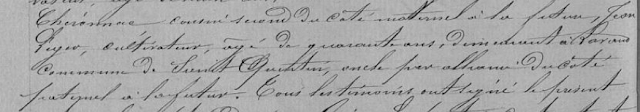 Cheronnac cousin second du côté maternel à la future, Jean
Leger, cultivateur, agé de quarante ans, demeurant à
commune de Saint Quentin, oncle par alliance du coté
paternel à la future. Tous les témoins ont signé le présent